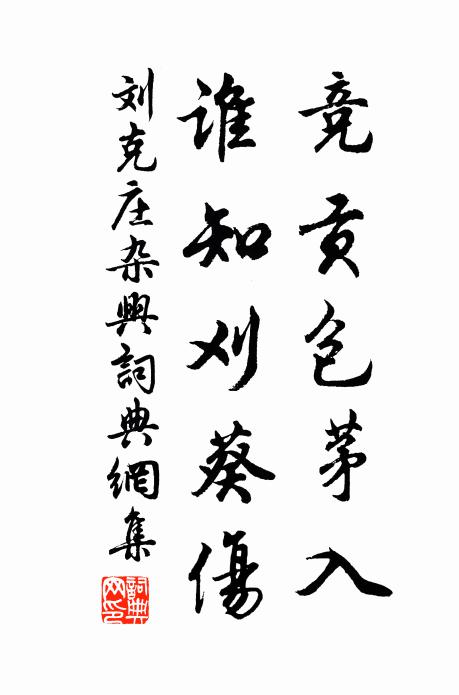 竞贡包茅入
谁知刈葵傷
刘克庄杂興詞典網集
詞典网印